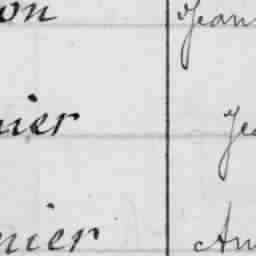 on Jean
nier Je
nier An